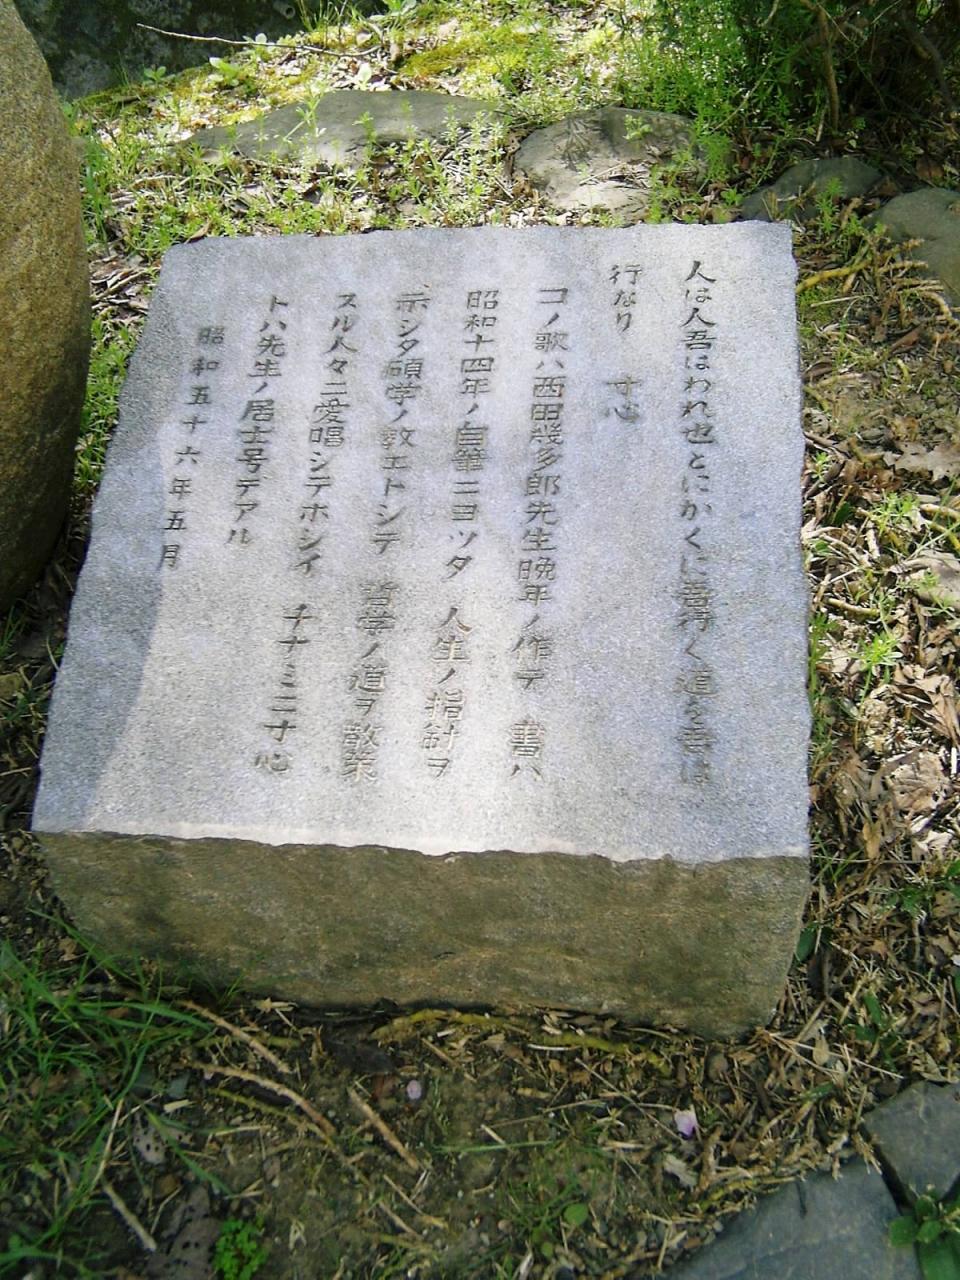 人は人吾はわれ也とにかくに吾行く道を吾は
行なり　寸心
コノ歌ハ西田幾多郎先生晩年ノ作デ　書ハ
昭和十四年ノ自筆ニヨツタ　人生ノ指針ヲ
示シタ碩学ノ教エトシテ　哲学ノ道ヲ散策
スル人々ニ愛唱シテホシイ　チナミニ寸心
トハ先生ノ居士号デアル
昭和五十六年五月